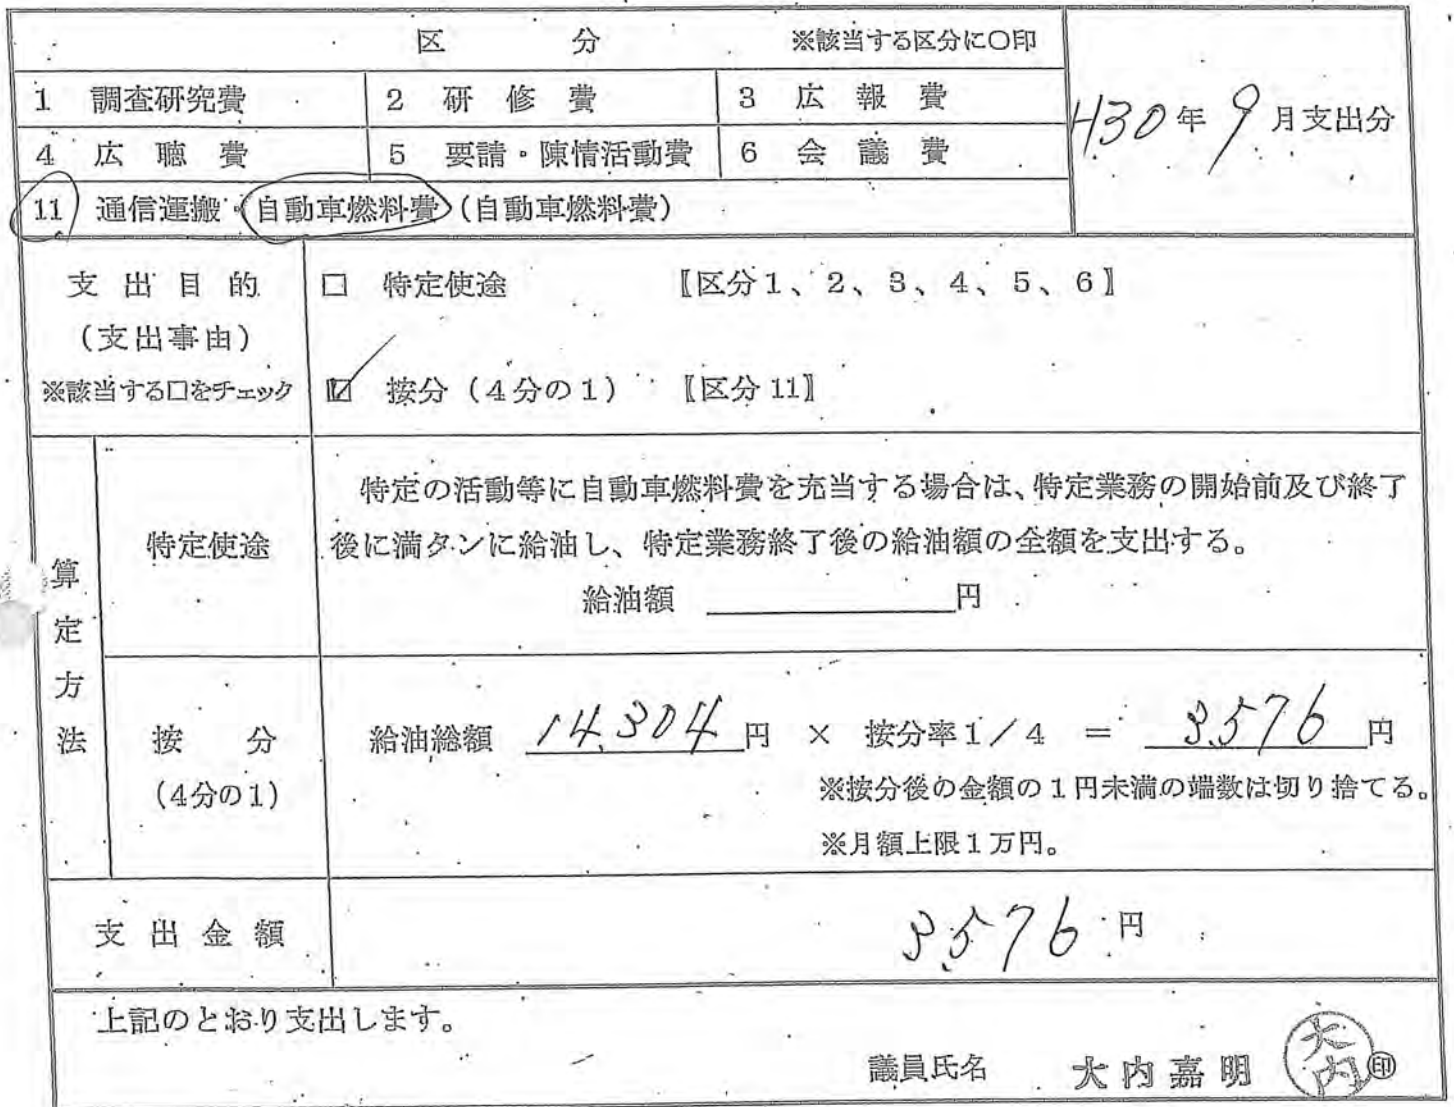 区　分　※該当する区分に〇印
1 調査研究費　2 研修費　3 広報費
H30年 9月支出分
4 広聴費　5 要請・陳情活動費　6 会議費
11 通信運搬・自動車燃料費(自動車燃料費)
支出目的
(支出事由)
※該当する□をチェック
□ 特定使途　〚区分1、2、3、4、5、6〛
☑ 按分(4分の1)　〚区分11〛
算定方法
特定使途
特定の活動等に自動車燃料費を充当する場合は、特定業務の開始前及び終了
後に満タンに給油し、特定業務終了後の給油額の全額を支出する。
給油額　　　　円
按分
(4分の1)
給油総額 14,304円 × 按分率1／4 = 3,576円
※按分後の金額の1円未満の端数は切り捨てる。
※月額上限1万円。
支出金額　3,576円
上記のとおり支出します。
議員氏名　大内嘉明　大内 ㊞